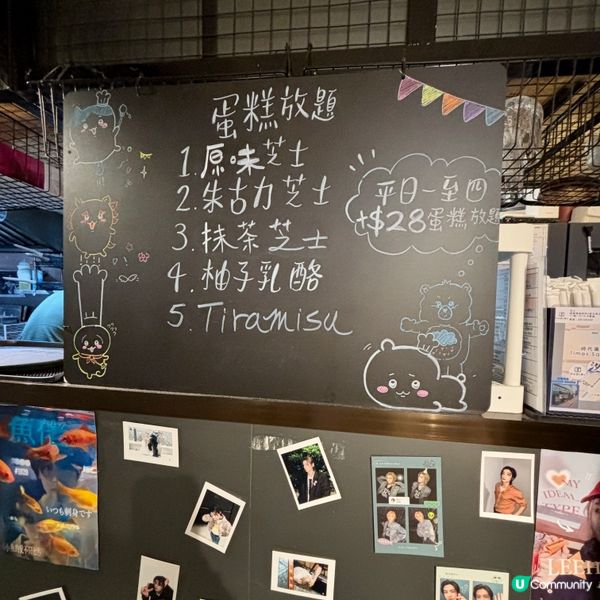 蛋糕放題
1. 原味芝士
2. 朱古力芝士
3. 抹茶芝士
4. 柚子乳酪
5. Tiramisu
平日一至四
+$28蛋糕放題
魚
いつも刺身です
MY
IDEAL
TYPE
LEEH
U Community